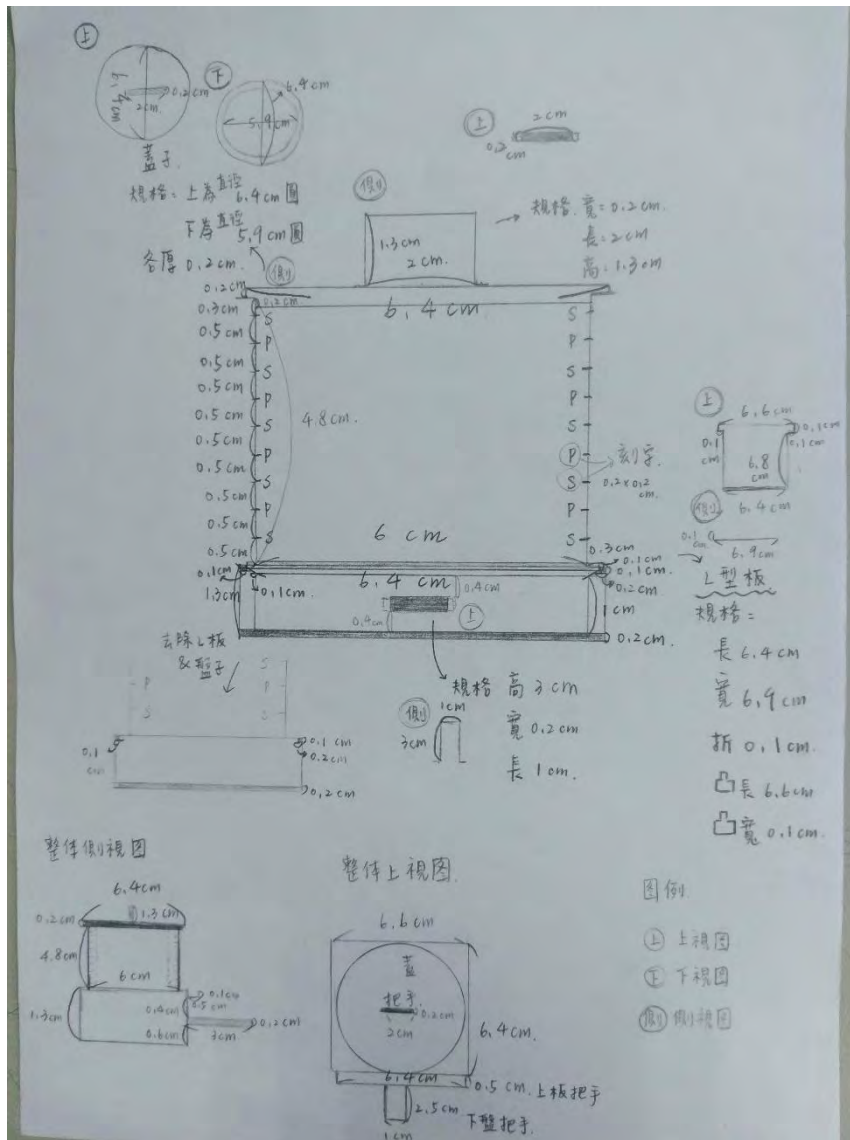 上
6.4cm
0.2cm
2cm.
蓋子
下
6.4cm
5.9cm
規格: 上為直徑6.4cm圓
下為直徑5.9cm圓
各厚 0.2cm.
上
2cm
0.2cm
側
1.3cm
2cm.
規格. 寬=0.2cm.
長=2cm
高:1.3cm
側
0.2cm
0.2cm
6.4cm
0.3cm
0.5cm
0.5cm
0.5cm
0.5cm
0.5cm
0.5cm
0.5cm
0.5cm
0.5cm
S
P
S
P
S
P
S
P
S
4.8cm.
S
P
S
P
S
P
S
P
S
刻字.
0.2×0.2cm.
6cm
0.3cm
0.1cm
0.1cm
0.2cm
1cm
0.2cm.
0.1cm
1.3cm
0.1cm
6.4cm
0.4cm
上
上
6.6cm
0.1cm
0.1cm
0.1cm
6.8cm
6.4cm
側
0.1cm
6.9cm
L型板
規格=
長6.4cm
寬6.9cm
折0.1cm.
凸長6.6cm
凸寬0.1cm.
去除L板
&盤子
S
P
P
S
0.1cm
0.1cm
0.2cm
0.2cm
規格 高3cm
寬0.2cm
長1cm.
側
1cm
3cm
整体側視图
6.4cm
0.2cm
1.3cm
4.8cm
6cm
0.1cm
0.5cm
0.4cm
1.3cm
0.6cm
3cm
0.2cm
整体上視图.
6.6cm
蓋
把手.
0.2cm
2cm
6.4cm.
6.4cm
0.5cm.上板把手
2.5cm
下盤把手.
1cm
图例.
上 上視图
下 下視图
側 側視图